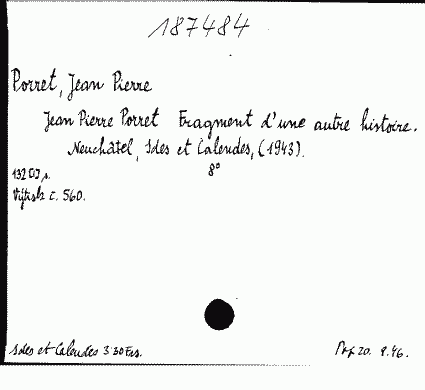 187484
Porret, Jean Pierre
Jean Pierre Porret Fragment d'une autre histoire.
Neuchâtel, Ides et Calendes, (1943).
8°
132 s.
Výtisk č. 560.
Ides et Calendes 3.30 Frs.
20. 9.46.